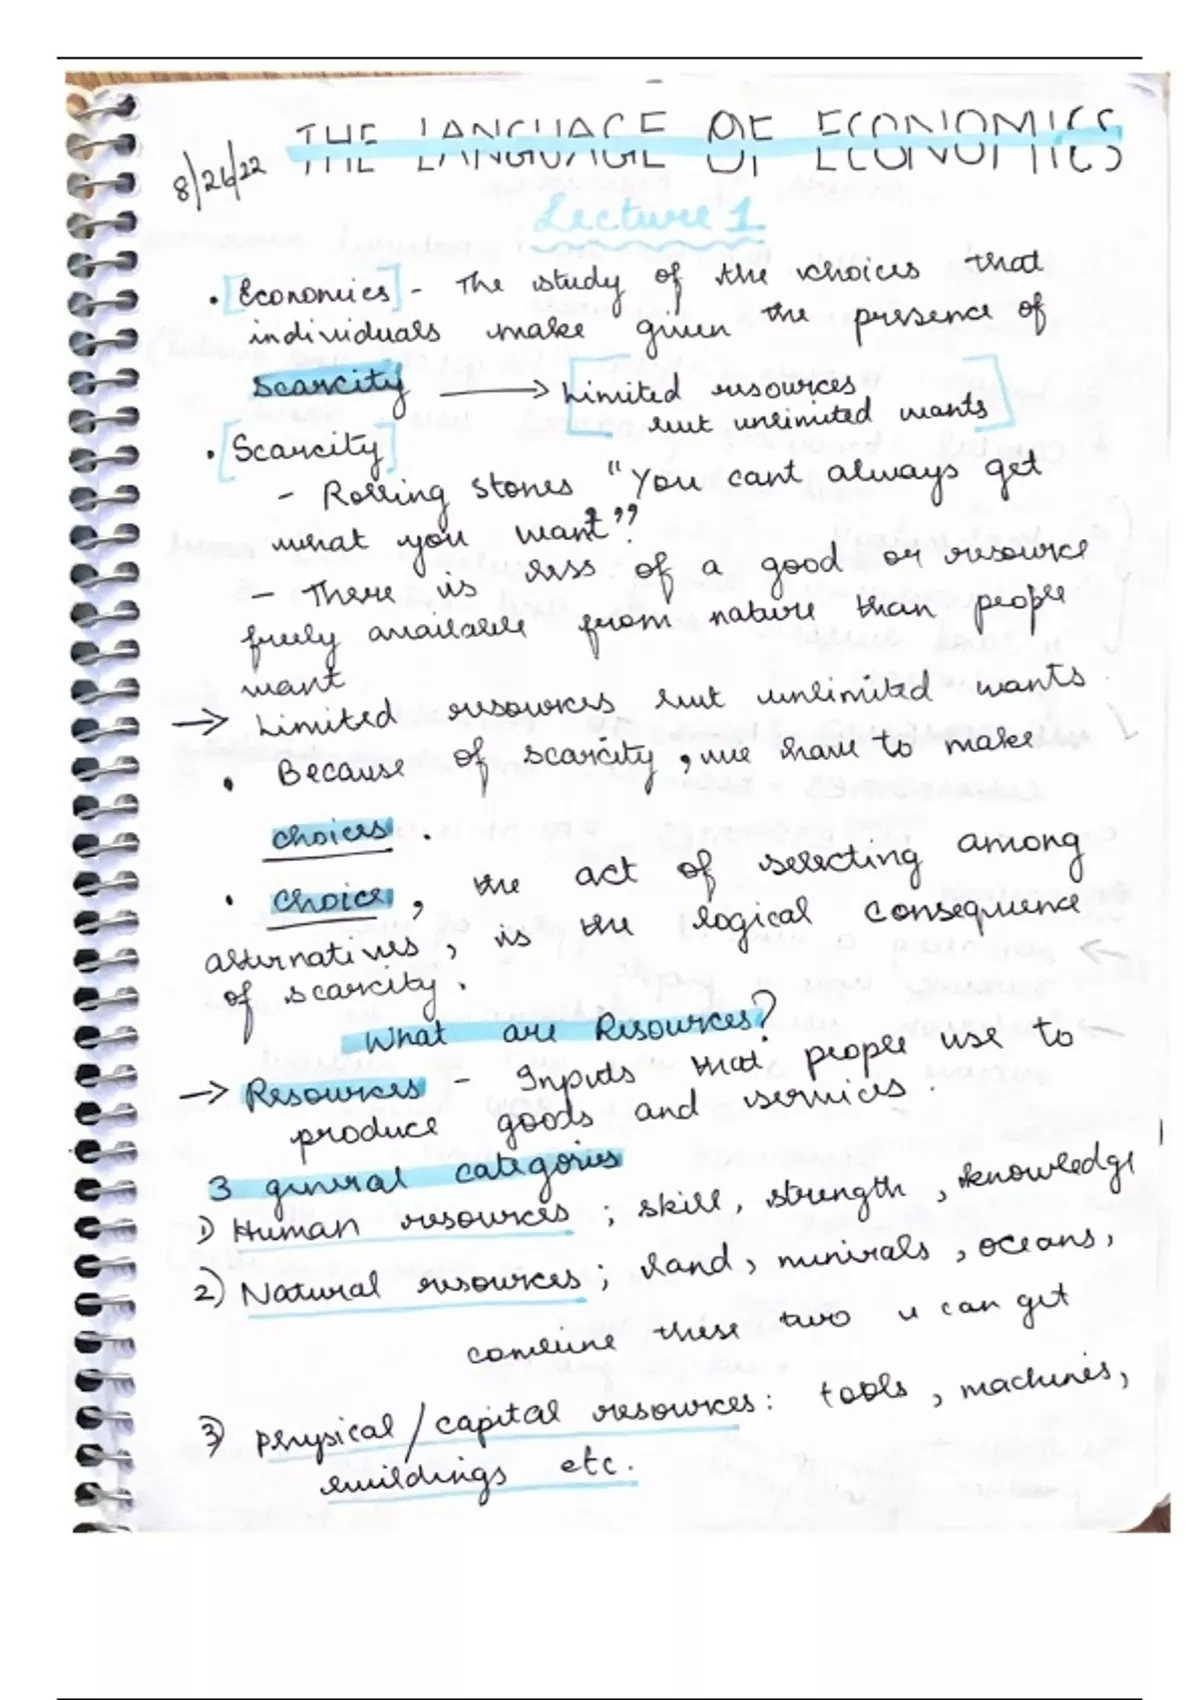 THE LANGUAGE OF ECONOMICS
8/26/22
Lecture 1
• Economics - The study of the choices that
individuals make given the presence of
scarcity → Limited resources
but unlimited wants
• Scarcity
- Rolling Stones "You cant always get
what you want"
- There is less of a good or resource
freely available from nature than people
want
→ Limited resources but unlimited wants
• Because of scarcity, we have to make
choices.
• Choice, the act of selecting among
alternatives, is the logical consequence
of scarcity.
What are Resources?
→ Resources - Inputs that people use to
produce goods and services.
3 general categories
1) Human resources ; skill, strength, knowledge
2) Natural resources ; land, minirals, oceans,
combine these two u can get
3) physical/capital resources: tools, machines,
buildings etc.